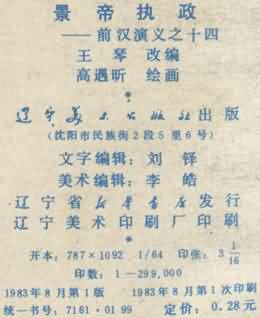 景帝执政
——前汉演义之十四
王琴 改编
高遇昕 绘画
辽宁美术出版社出版
(沈阳市民族街2段5里6号)
文字编辑：刘铎
美术编辑：李皓
辽宁省新华书店发行
辽宁美术印刷厂印刷
开本：787×1092 1/64 印张：3 1/16
印数：1—299,000
1983年8月第1版 1983年8月第1次印刷
统一书号：7161·0199 定价：0.28元